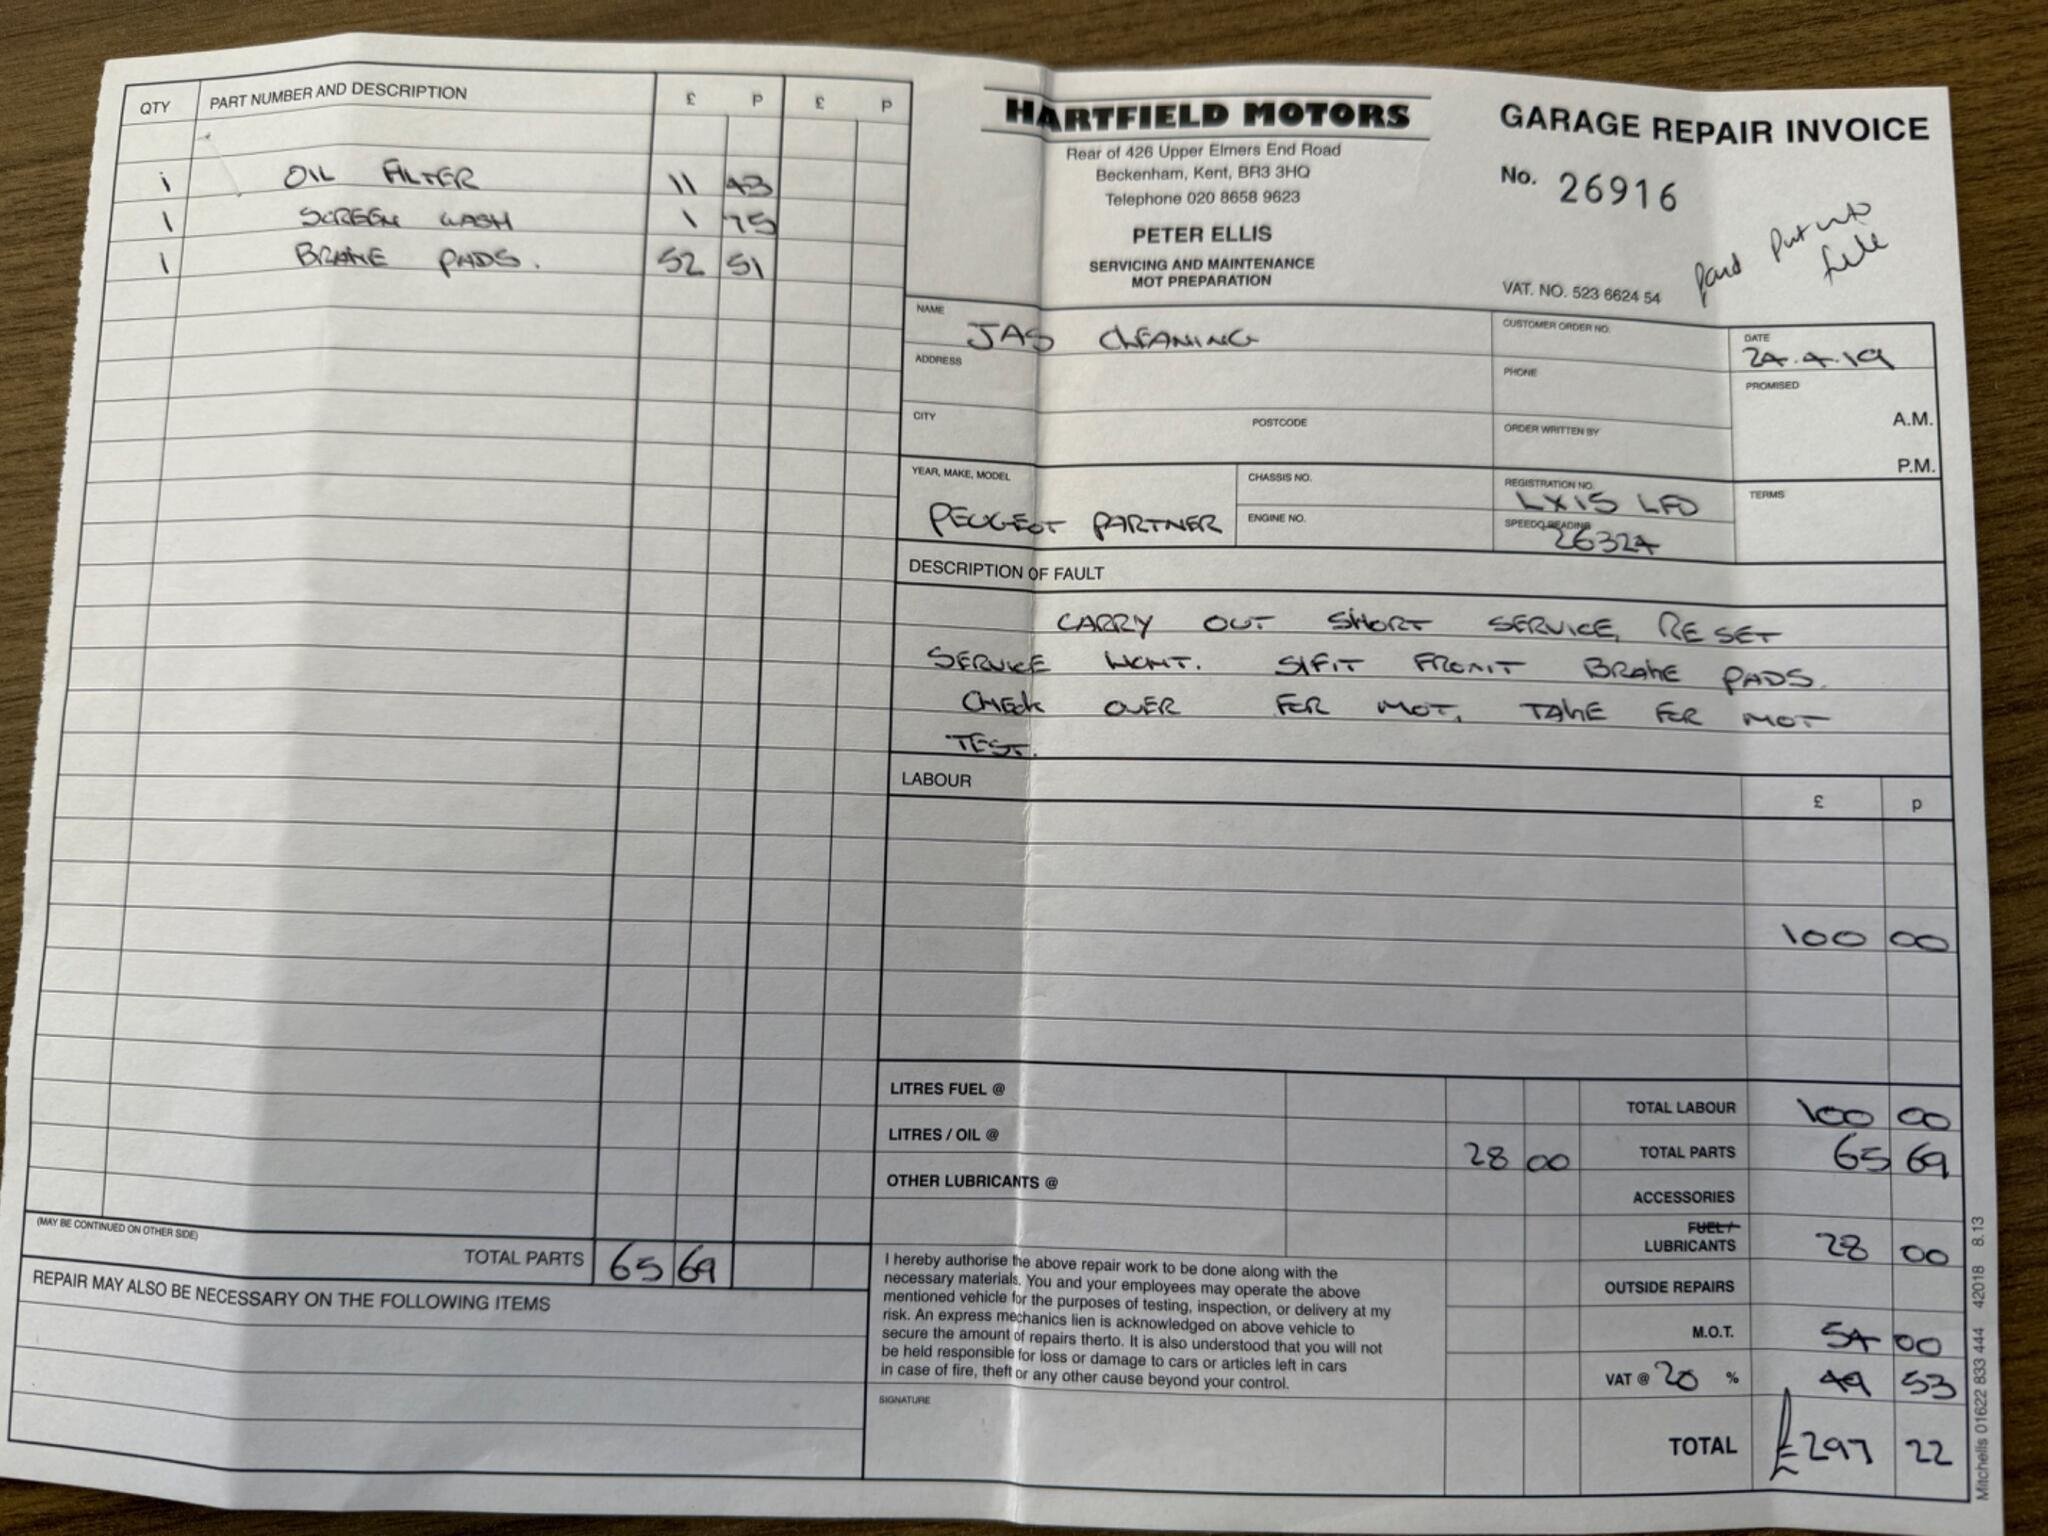 QTY PART NUMBER AND DESCRIPTION £ P £ P
1 OIL FILTER 11 43
1 SCREEN WASH 1 75
1 BRAKE PADS. 52 51
(MAY BE CONTINUED ON OTHER SIDE)
TOTAL PARTS 65 69
REPAIR MAY ALSO BE NECESSARY ON THE FOLLOWING ITEMS
HARTFIELD MOTORS
Rear of 426 Upper Elmers End Road
Beckenham, Kent, BR3 3HQ
Telephone 020 8658 9623
PETER ELLIS
SERVICING AND MAINTENANCE
MOT PREPARATION
GARAGE REPAIR INVOICE
No. 26916
paid Put into
file
VAT. NO. 523 6624 54
NAME JAS CLEANING
CUSTOMER ORDER NO.
DATE 24.4.19
ADDRESS
PHONE
PROMISED
A.M.
P.M.
CITY
POSTCODE
ORDER WRITTEN BY
YEAR, MAKE, MODEL
PEUGEOT PARTNER
CHASSIS NO.
ENGINE NO.
REGISTRATION NO.
LX15 LFD
SPEEDO READING
26324
TERMS
DESCRIPTION OF FAULT
CARRY OUT SHORT SERVICE, RESET
SERVICE S/FIT FRONT BRAKE PADS.
CHECK OVER FOR MOT, TAKE FOR MOT
TEST.
LABOUR £ p
100 00
LITRES FUEL @
LITRES / OIL @ 28 00
OTHER LUBRICANTS @
TOTAL LABOUR 100 00
TOTAL PARTS 65 69
ACCESSORIES
FUEL /
LUBRICANTS 28 00
OUTSIDE REPAIRS
M.O.T. 54 00
VAT @ 20 % 49 53
TOTAL £297 22
I hereby authorise the above repair work to be done along with the
necessary materials. You and your employees may operate the above
mentioned vehicle for the purposes of testing, inspection, or delivery at my
risk. An express mechanics lien is acknowledged on above vehicle to
secure the amount of repairs therto. It is also understood that you will not
be held responsible for loss or damage to cars or articles left in cars
in case of fire, theft or any other cause beyond your control.
SIGNATURE
Mitchells 01622 833 444 42018 8.13